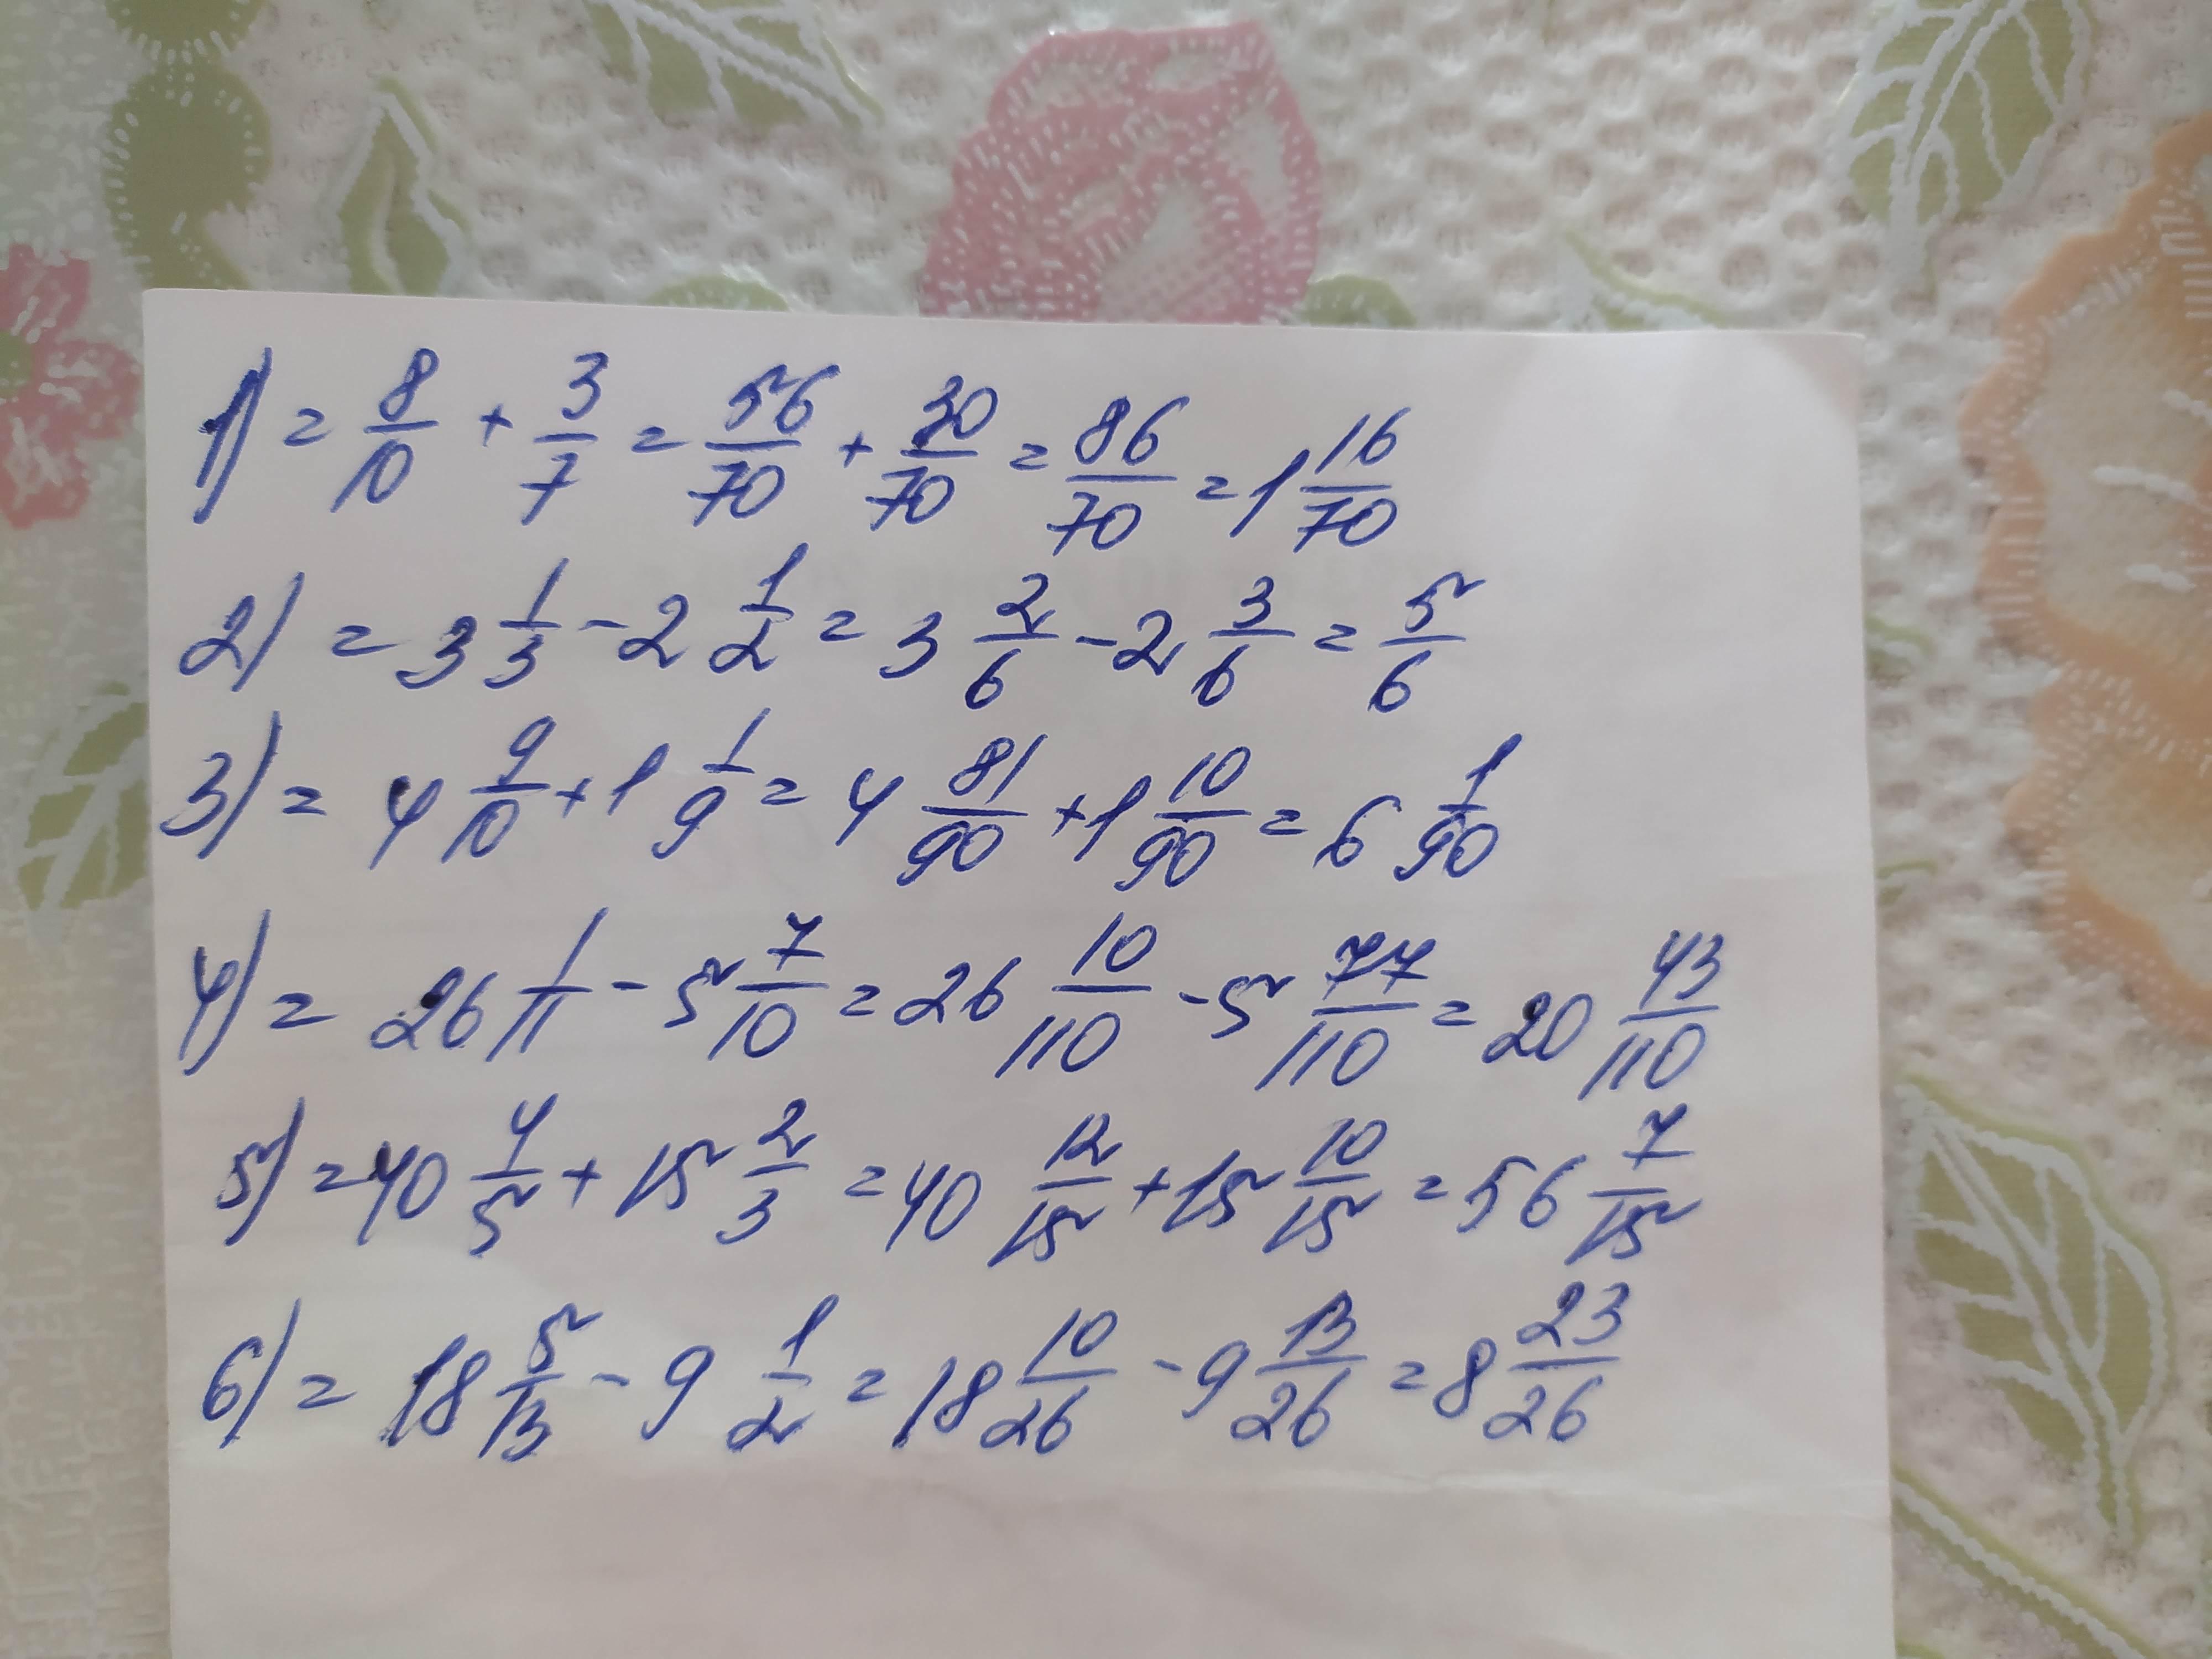 1) = 8/10 + 3/7 = 56/70 + 30/70 = 86/70 = 1 16/70
2) = 3 1/3 - 2 1/2 = 3 2/6 - 2 3/6 = 5/6
3) = 4 9/10 + 1 1/9 = 4 81/90 + 1 10/90 = 6 1/90
4) = 26 1/11 - 5 7/10 = 26 10/110 - 5 77/110 = 20 43/110
5) = 40 4/5 + 15 2/3 = 40 12/15 + 15 10/15 = 56 7/15
6) = 18 5/13 - 9 1/2 = 18 10/26 - 9 13/26 = 8 23/26